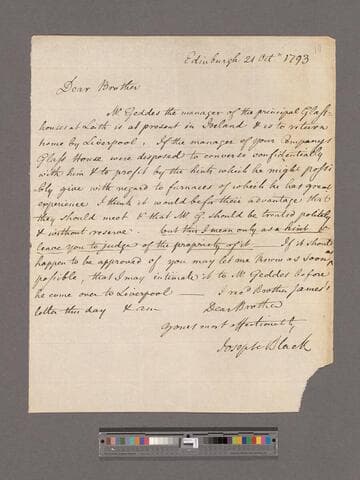 Edinburgh 21 Octr 1793
Dear Brother
Mr Geddes the manager of the principal Glass-
houses at Leith is at present in Ireland & is to return
home by Liverpool, If the manager of your Companys
Glass House were disposed to converse confidentially
with him & to profit by the hints which he might possi
bly give with regard to furnaces of which he has great
experience I think it would be for their advantage that
they should meet & that Mr G. should be treated politely
& without reserve. but this I mean only as a hint &
leave you to judge of the propriety of it — If it should
happen to be approved of you may let me know as soon as
possible, that I may intimate it to Mr Geddes before
he come over to Liverpool — I recd Brother James's
letter this day & am Dear Brother
yours most affectionately
Joseph Black